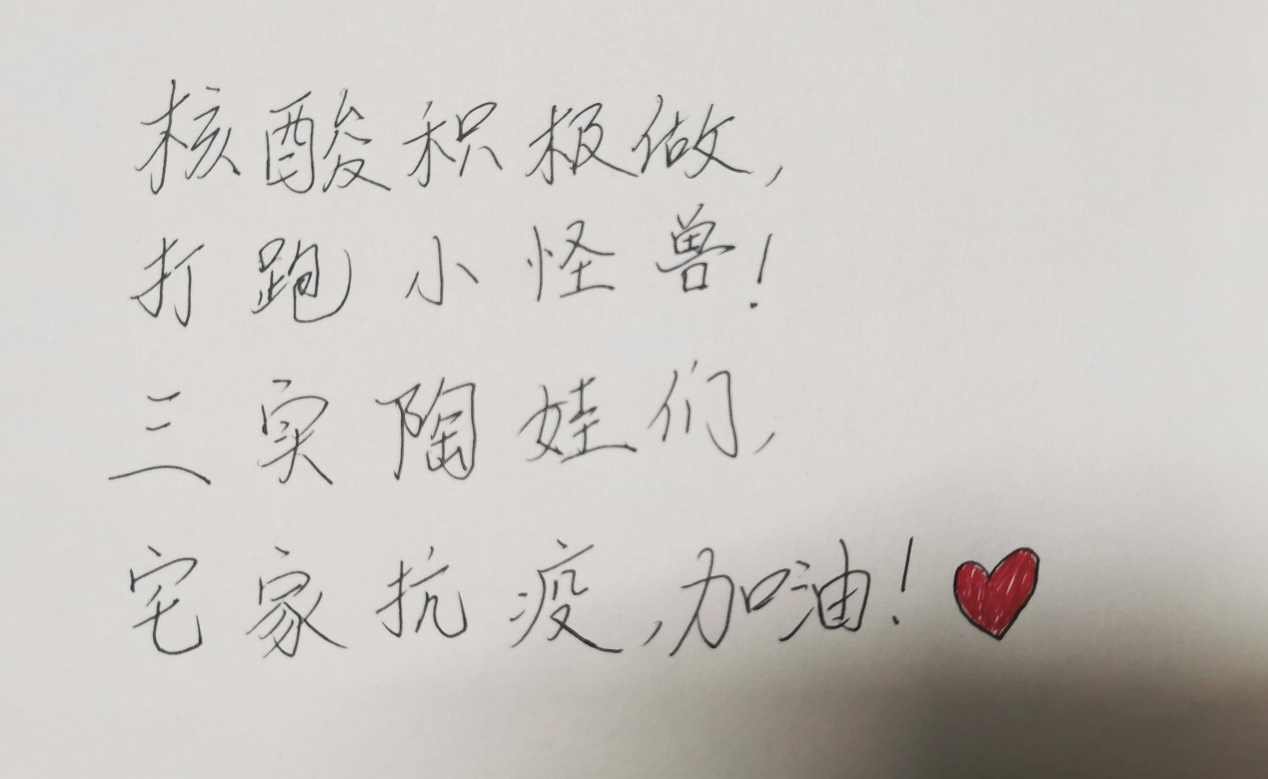 核酸积极做,
打跑小怪兽!
三实陶娃们,
宅家抗疫,加油!